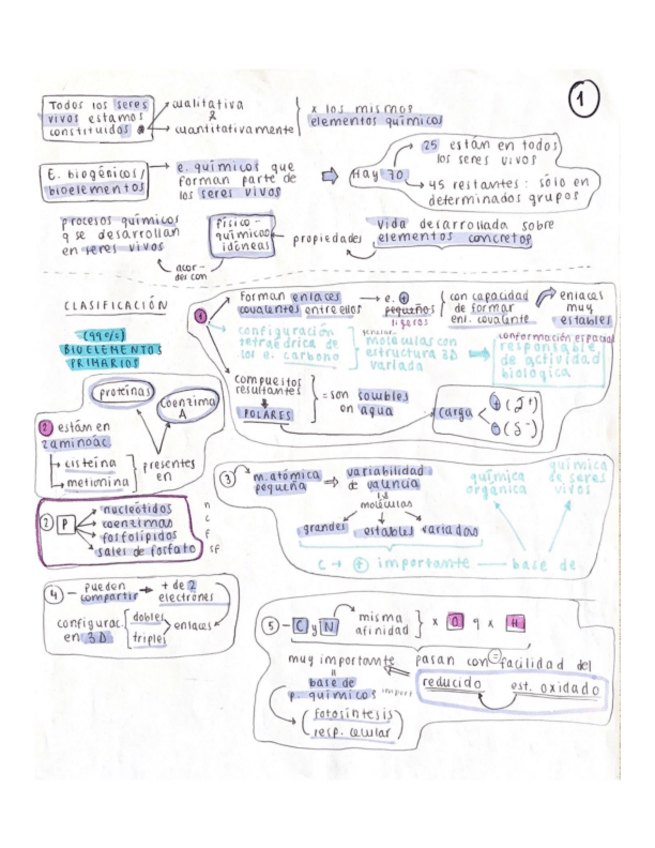 1
Todos los seres
vivos estamos
constituidos
cualitativa
&
cuantitativamente
x los mismos
elementos químicos
E. biogénicos/
bioelementos
e. químicos que
forman parte de
los seres vivos
Hay 70
25 están en todos
los seres vivos
45 restantes: sólo en
determinados grupos
procesos químicos
q se desarrollan
en seres vivos
acor-
des con
físico-
químicas
idóneas
propiedades
vida desarrollada sobre
elementos concretos
CLASIFICACIÓN
(99%)
BIOELEMENTOS
PRIMARIOS
1
forman enlaces
covalentes entre ellos
e. +
pequeños
ligeros
con capacidad
de formar
enl. covalente
enlaces
muy
estables
configuración
tetraédrica de
los e. carbono
moléculas con
estructura 3D
variada
conformación espacial
responsable
de actividad
biológica
compuestos
resultantes
POLARES
= son solubles
en agua
carga
+ (δ+)
- (δ-)
proteínas
coenzima
A
2 están en
2 aminoác.
cisteína
metionina
presentes
en
2 P
nucleótidos
coenzimas
fosfolípidos
sales de fosfato
n
c
f
sf
3
m. atómica
pequeña
variabilidad
de valencia
moléculas
grandes
estables
variadas
química
orgánica
química
de seres
vivos
C → + importante
base de
4 - pueden
compartir
+ de 2
electrones
configurac.
en 3D
dobles
triples
enlaces
5 - C y N
misma
afinidad
x O q x H
muy importante
pasan con = facilidad del
reducido
est. oxidado
base de
p. químicos
import
(fotosíntesis
resp. celular)